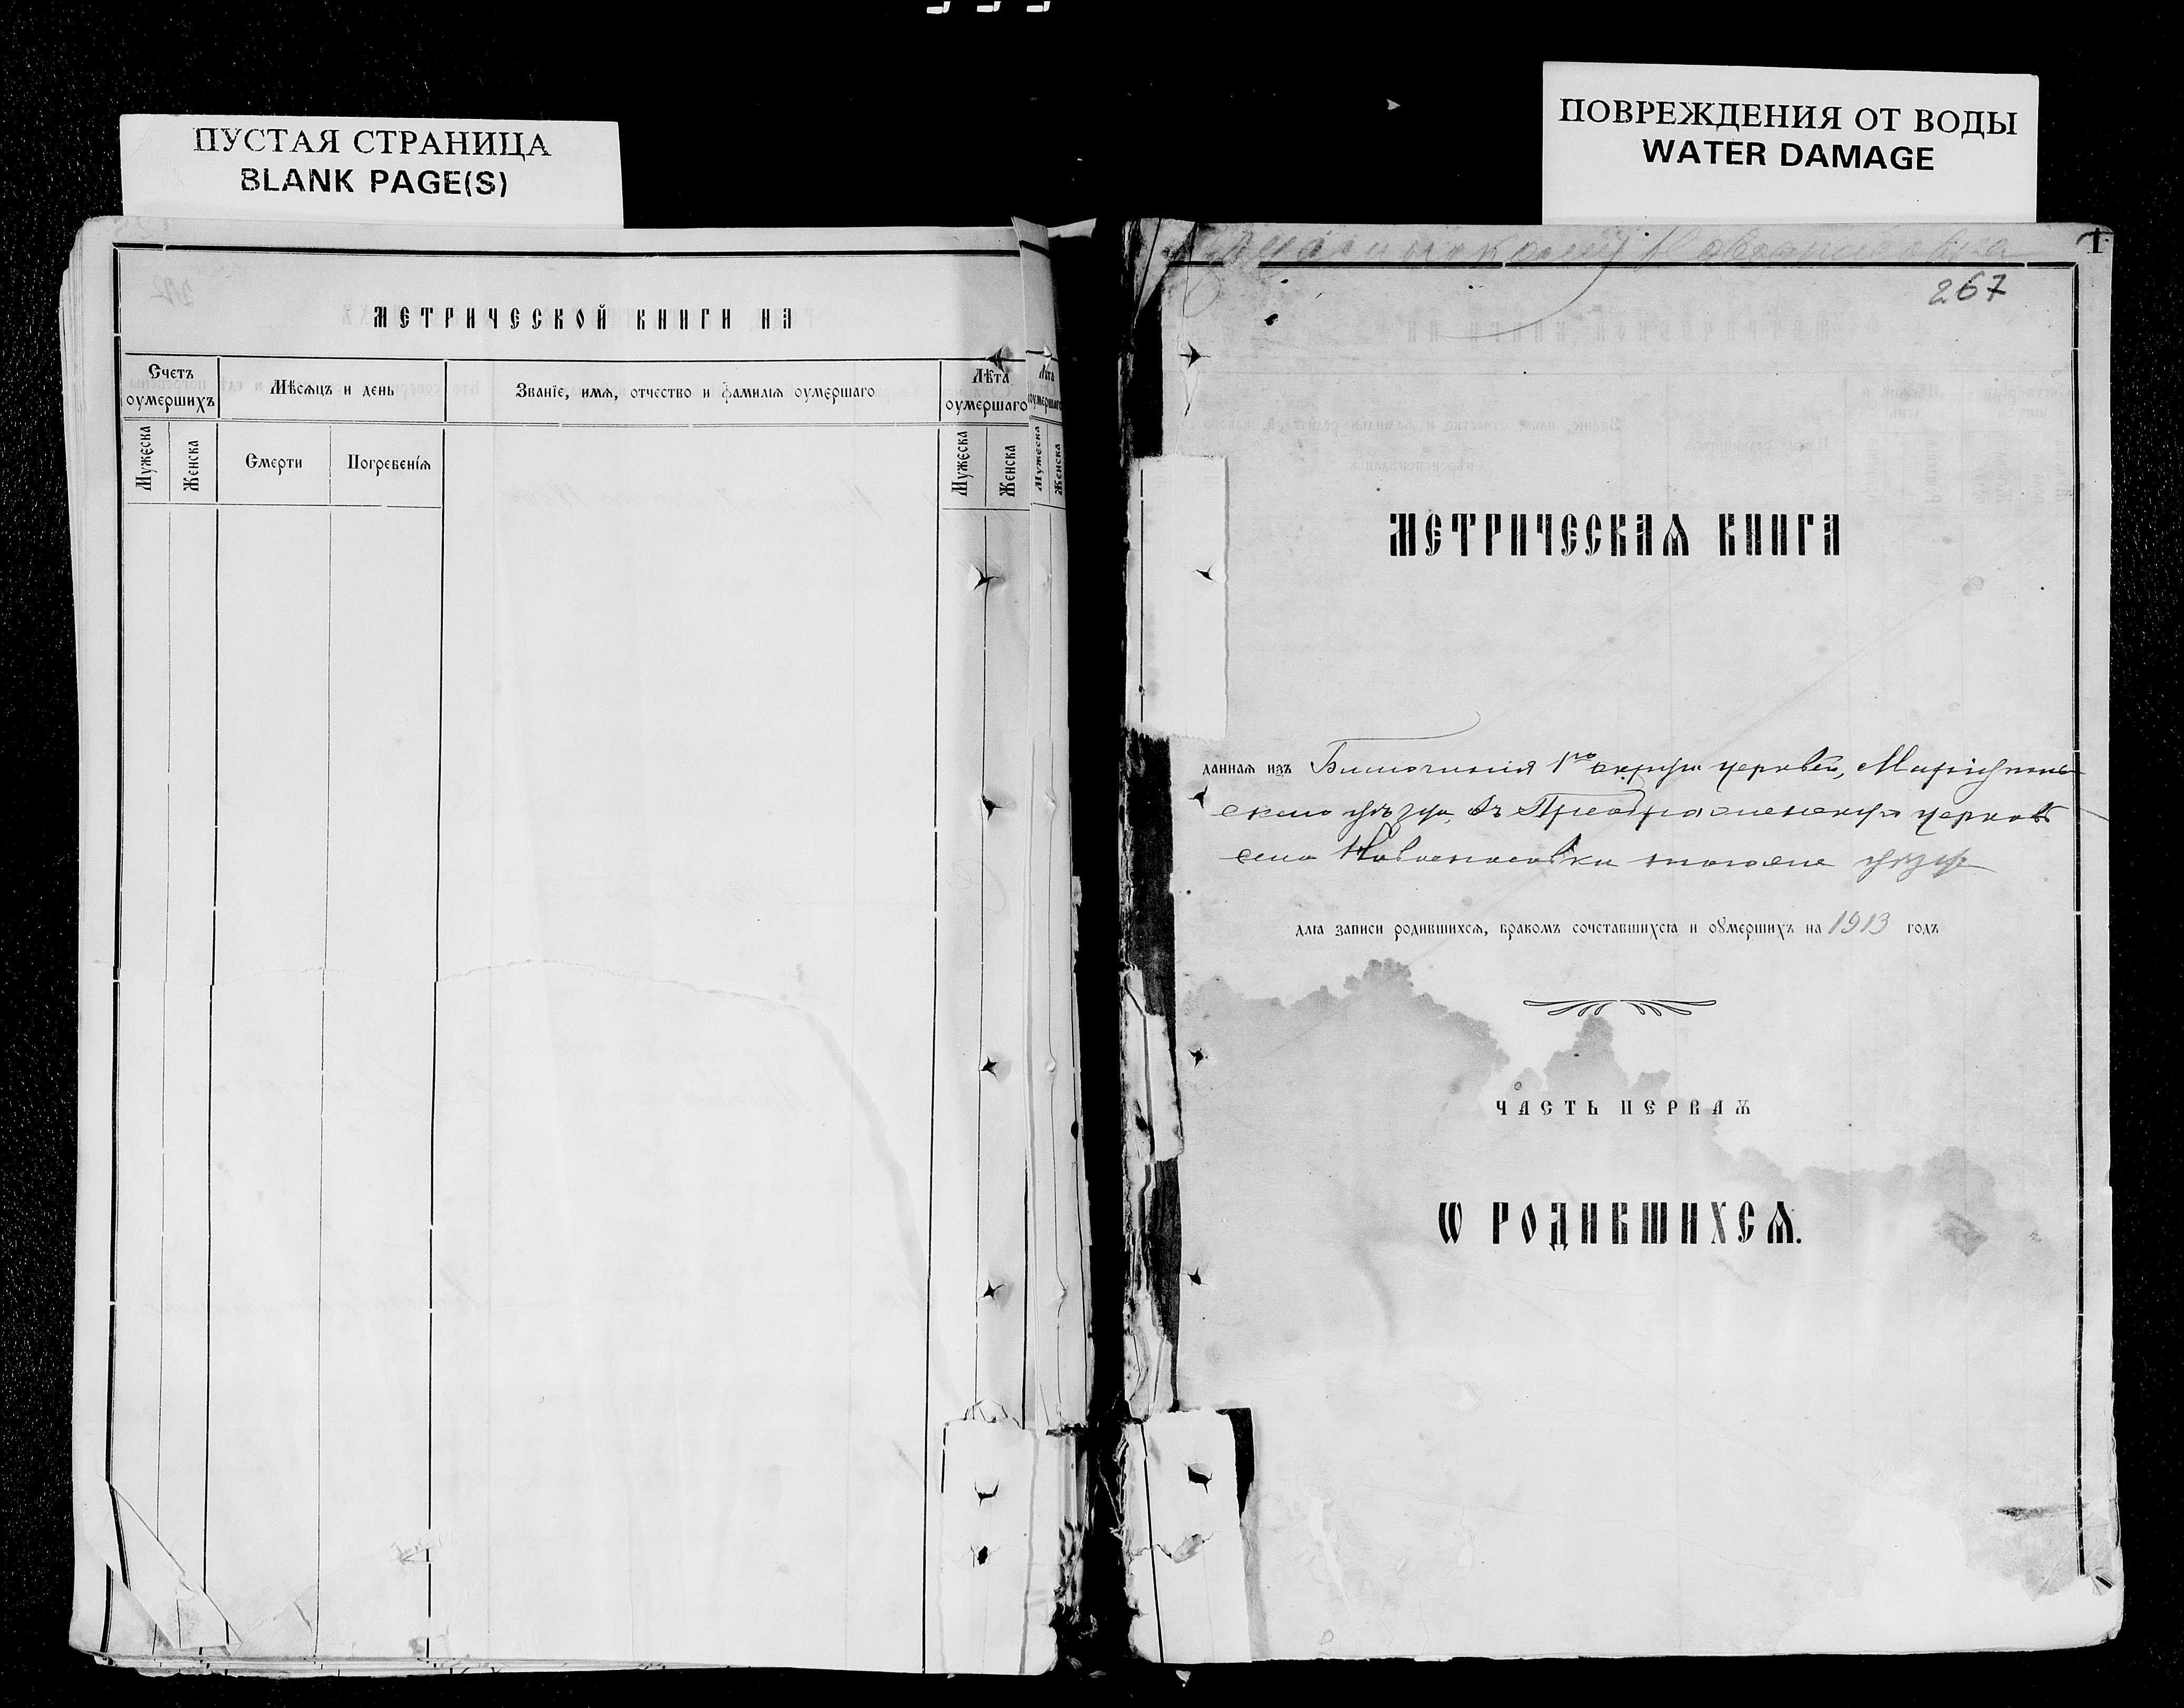 ПУСТАЯ СТРАНИЦА
BLANK PAGE(S)
ПОВРЕЖДЕНИЯ ОТ ВОДЫ
WATER DAMAGE
МЕТРИЧЕСКОЙ КНИГИ НА
Счетъ оумершихъ
Мѣсяцъ и день
Званіе, имя, отчество и фамилія оумершаго
Лѣта оумершаго
Лѣта оумершаго
Мужеска
Женска
Смерти
Погребенія
Мужеска
Женска
Мужеска
Женска
1
267
МЕТРИЧЕСКАЯ КНИГА
данная изъ Благочинія 1го округа церквей, Маріуполь
скаго уѣзда, въ Преображенскую церковь
села Новоспасовки того же уѣзда
для записи родившихся, бракомъ сочетавшихся и оумершихъ на 1913 годъ
ЧАСТЬ ПЕРВАЯ
Ѡ РОДИВШИХСЯ.